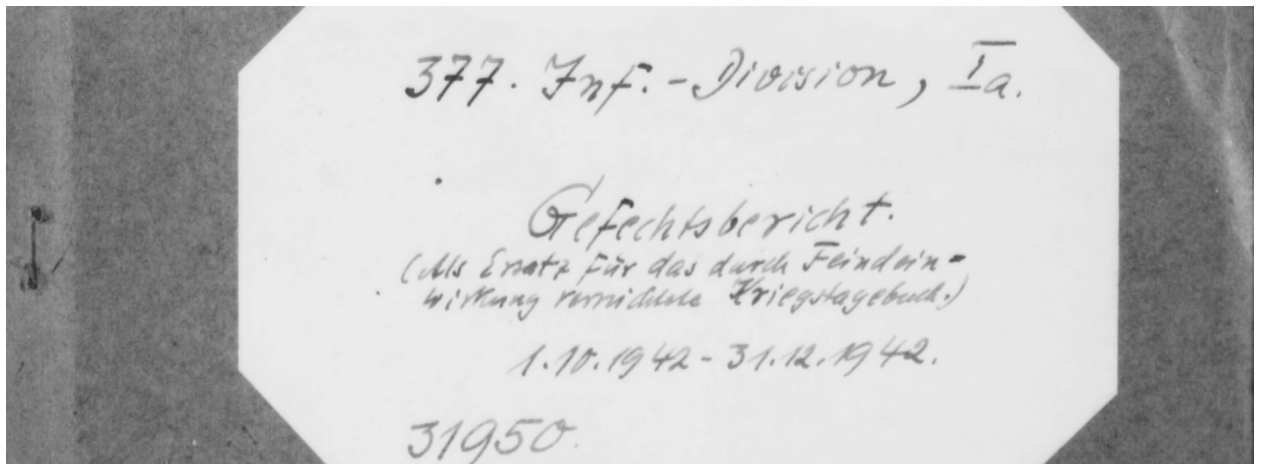 377. Inf.-Division, Ia.
Gefechtsbericht.
(Als Ersatz für das durch Feindein-
wirkung vernichtete Kriegstagebuch.)
1.10.1942 - 31.12.1942.
31950.